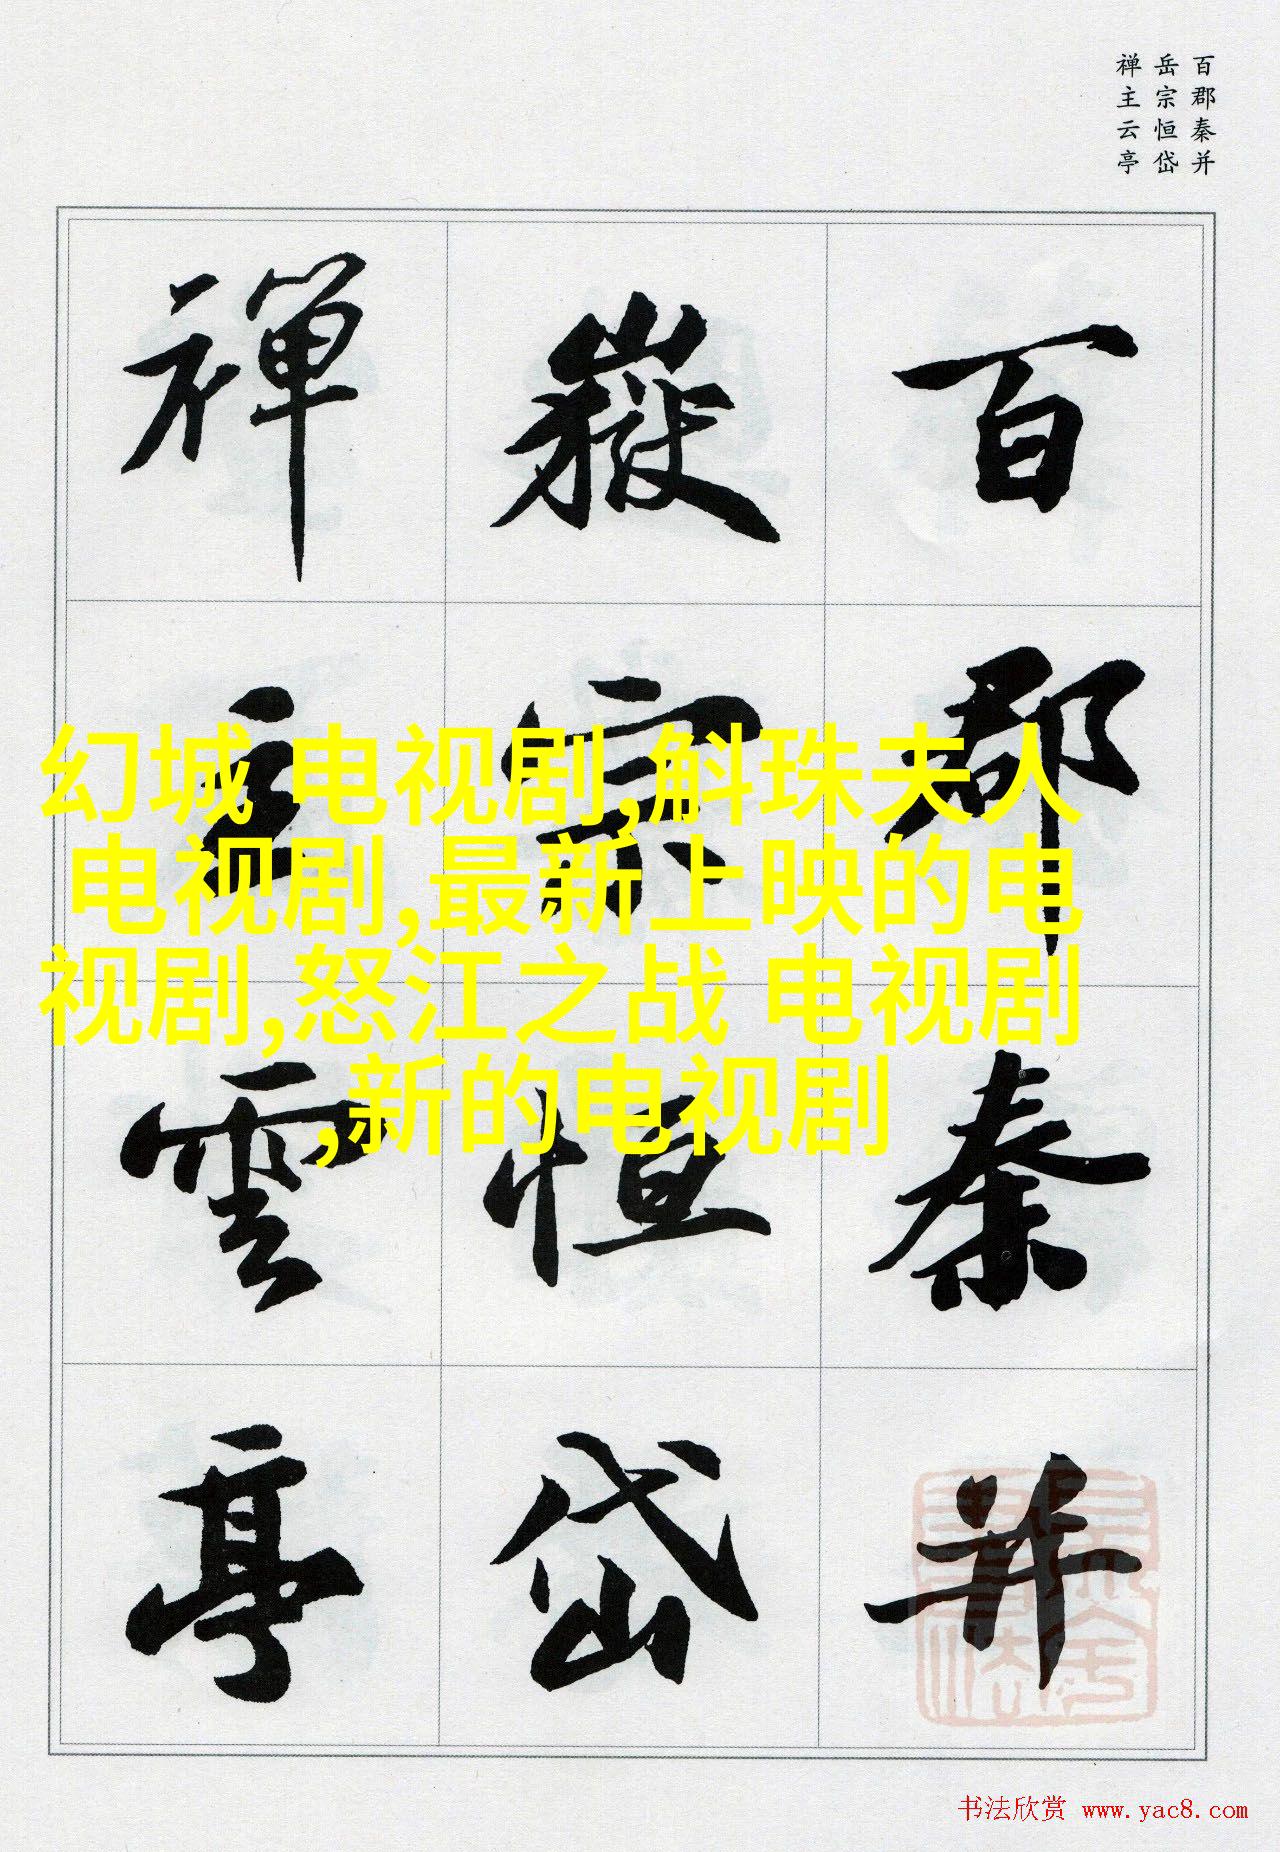 百郡秦并
岳宗恒岱
禅主云亭
百郡秦并
嶽宗恒岱
禅主雲亭
幻城 电视剧,斛珠夫人
电视剧,最新上映的电
视剧,怒江之战 电视剧
,新的电视剧
书法欣赏 www.yac8.com